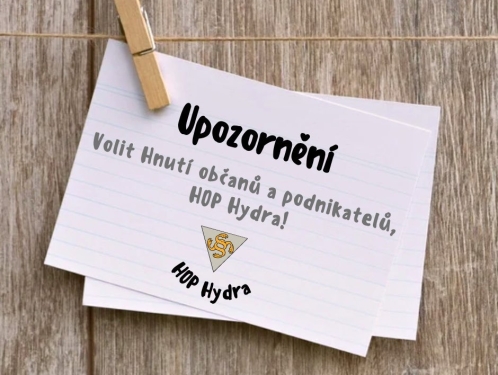 Upozornění
Volit Hnutí občanů a podnikatelů,
HOP Hydra!
HOP Hydra